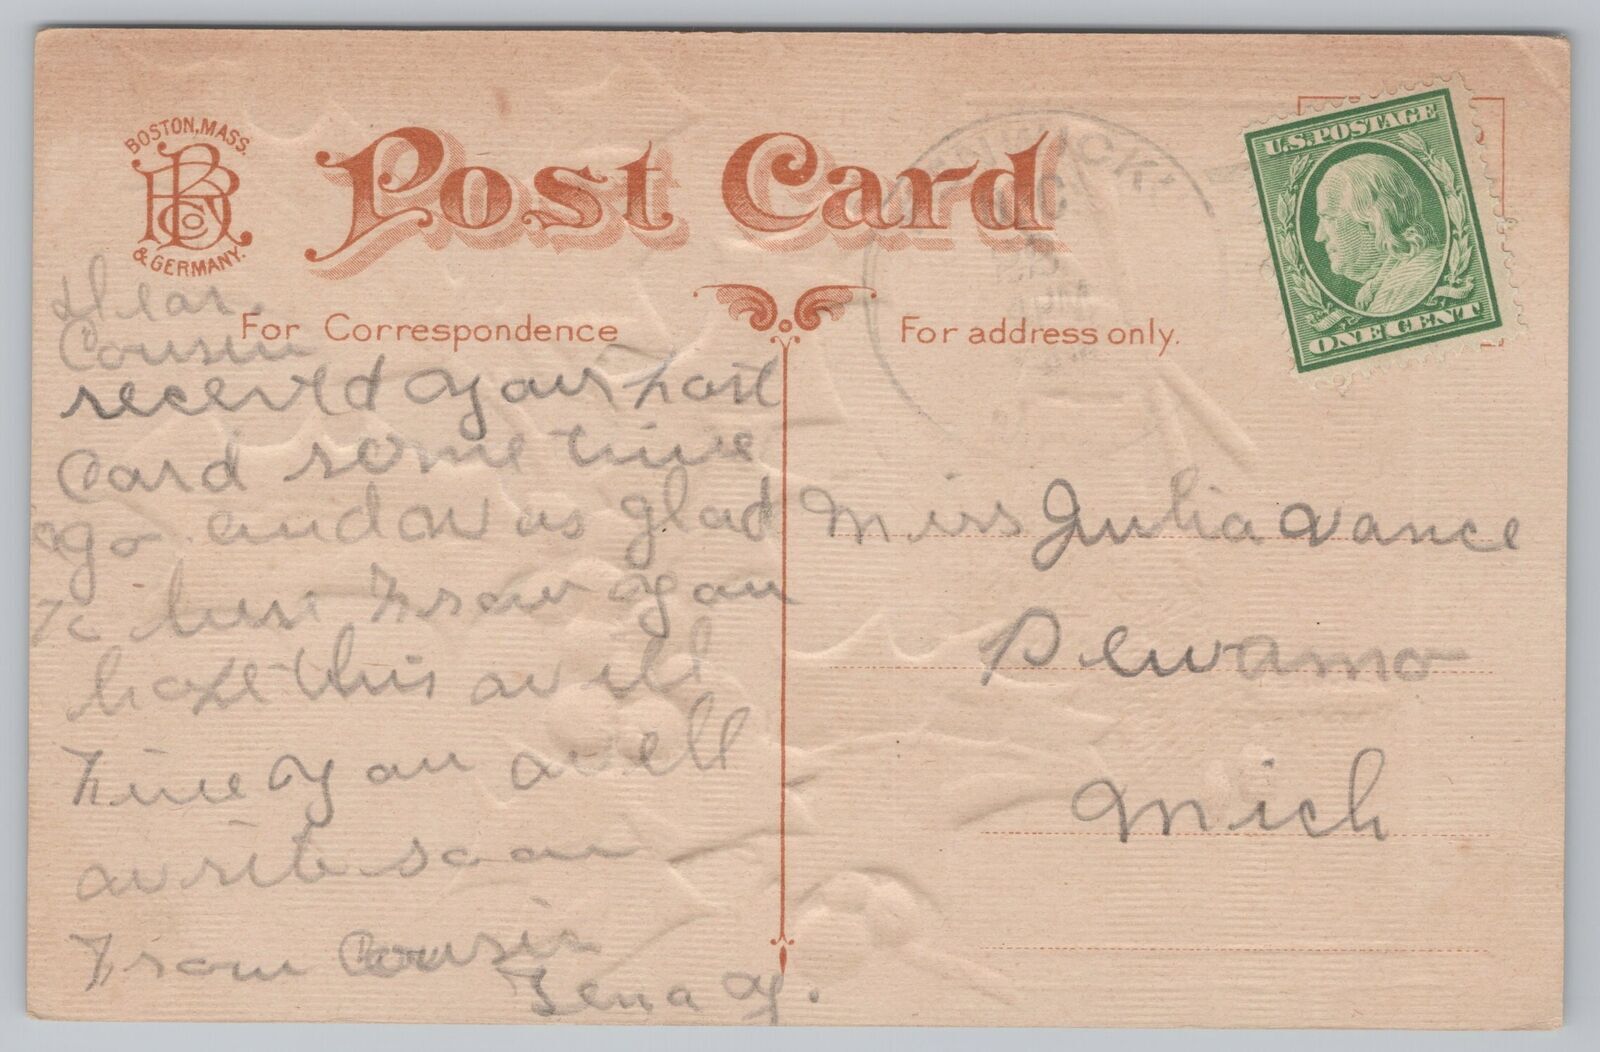 BOSTON, MASS.
& GERMANY.
Post Card
For Correspondence
For address only.
U.S. POSTAGE
ONE CENT
Dear
Cousin
received your post
Card some time
ago and was glad
to here from you
hope this will
fine you well
write soon
From Cousin
Lena Y.
Miss Julia Vance
Pewamo
Mich